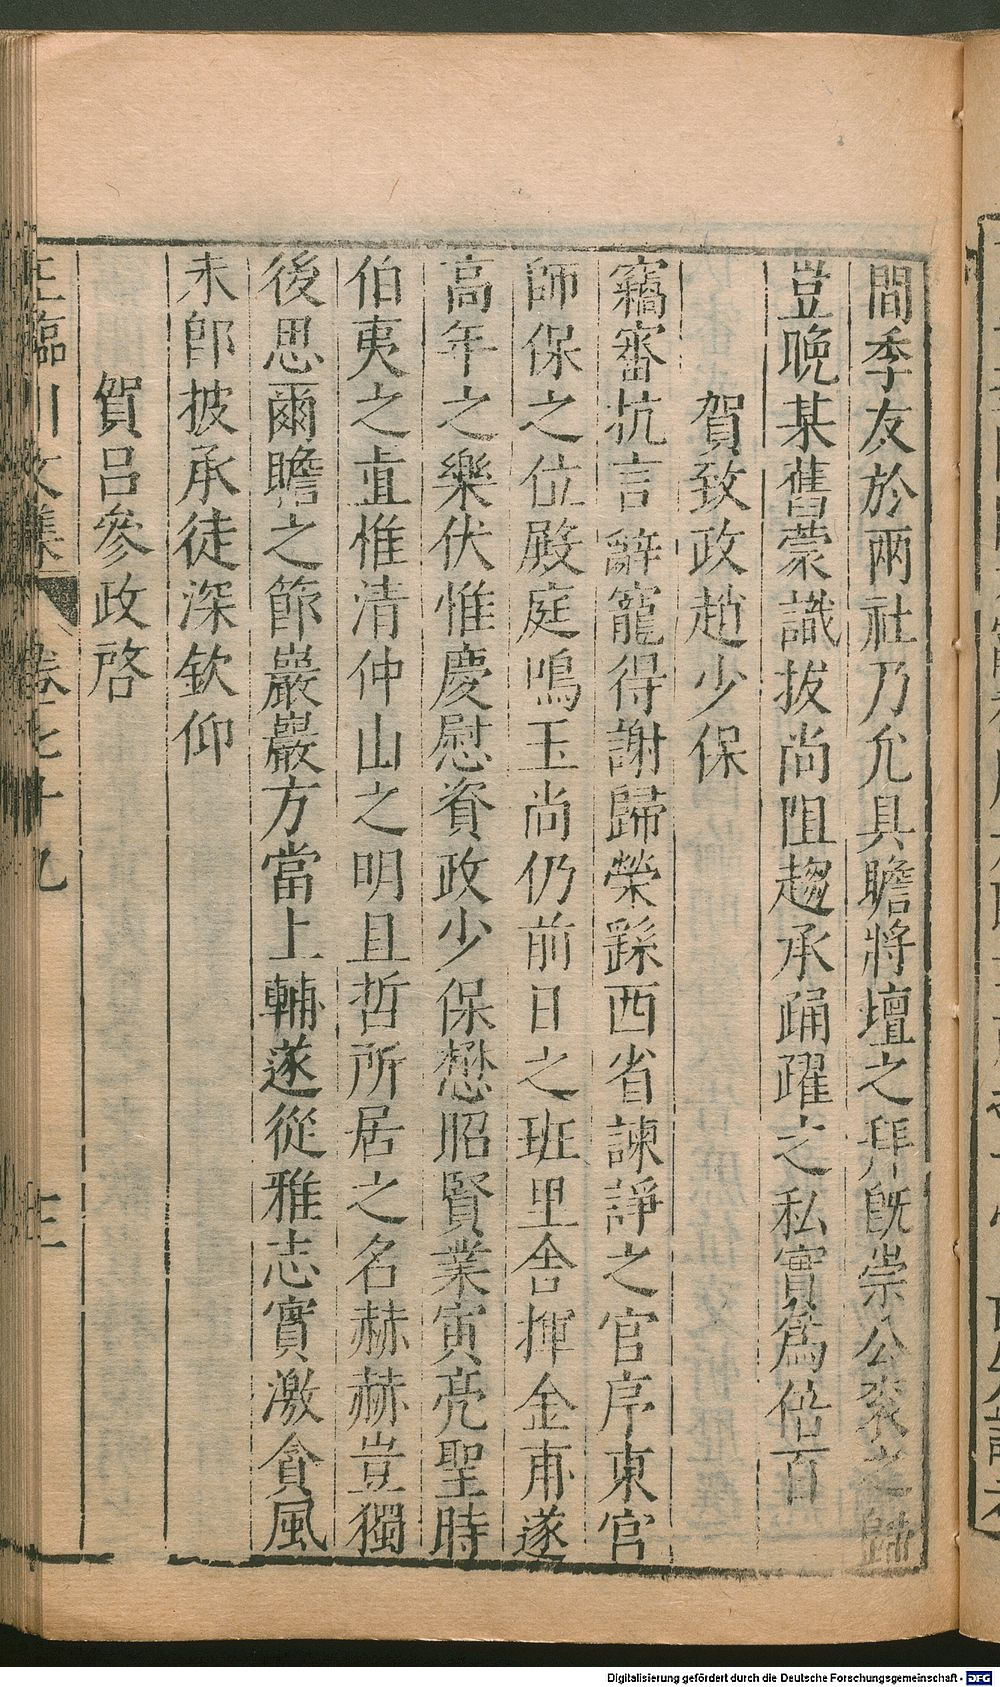 間季友於兩社乃允具瞻將壇之拜旣崇公衮之歸
豈晚某舊蒙識拔尚阻趨承踊躍之私實爲倍百
賀致政趙少保
竊審抗言辭寵得謝歸榮繇西省諫諍之官序東官
師保之位殿庭鳴玉尚仍前日之班里舍揮金甫遂
高年之樂伏惟慶慰資政少保懋昭賢業寅亮聖時
伯夷之直惟清仲山之明且哲所居之名赫赫豈獨
後思爾瞻之節巖巖方當上輔遂從雅志實激貪風
未卽披承徒深欽仰
賀呂參政啓
王臨川文集 卷七十九
Digitalisierung gefördert durch die Deutsche Forschungsgemeinschaft - DFG